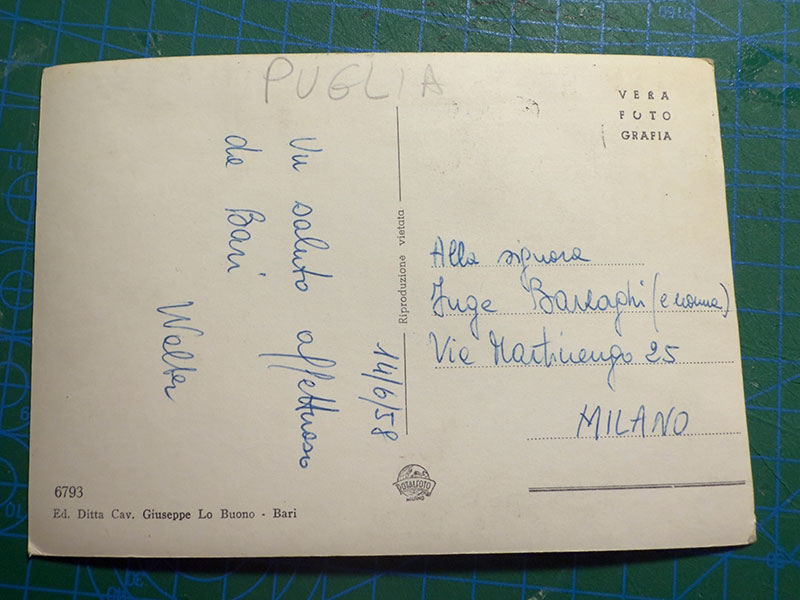 PUGLIA
14/6/58
Un saluto affettuoso
da Bari
Walter
Riproduzione vietata
VERA
FOTO
GRAFIA
Alla signora
Inge Barlaghi (e nonna)
Via Martinengo 25
MILANO
ROTALFOTO
MILANO
6793
Ed. Ditta Cav. Giuseppe Lo Buono - Bari